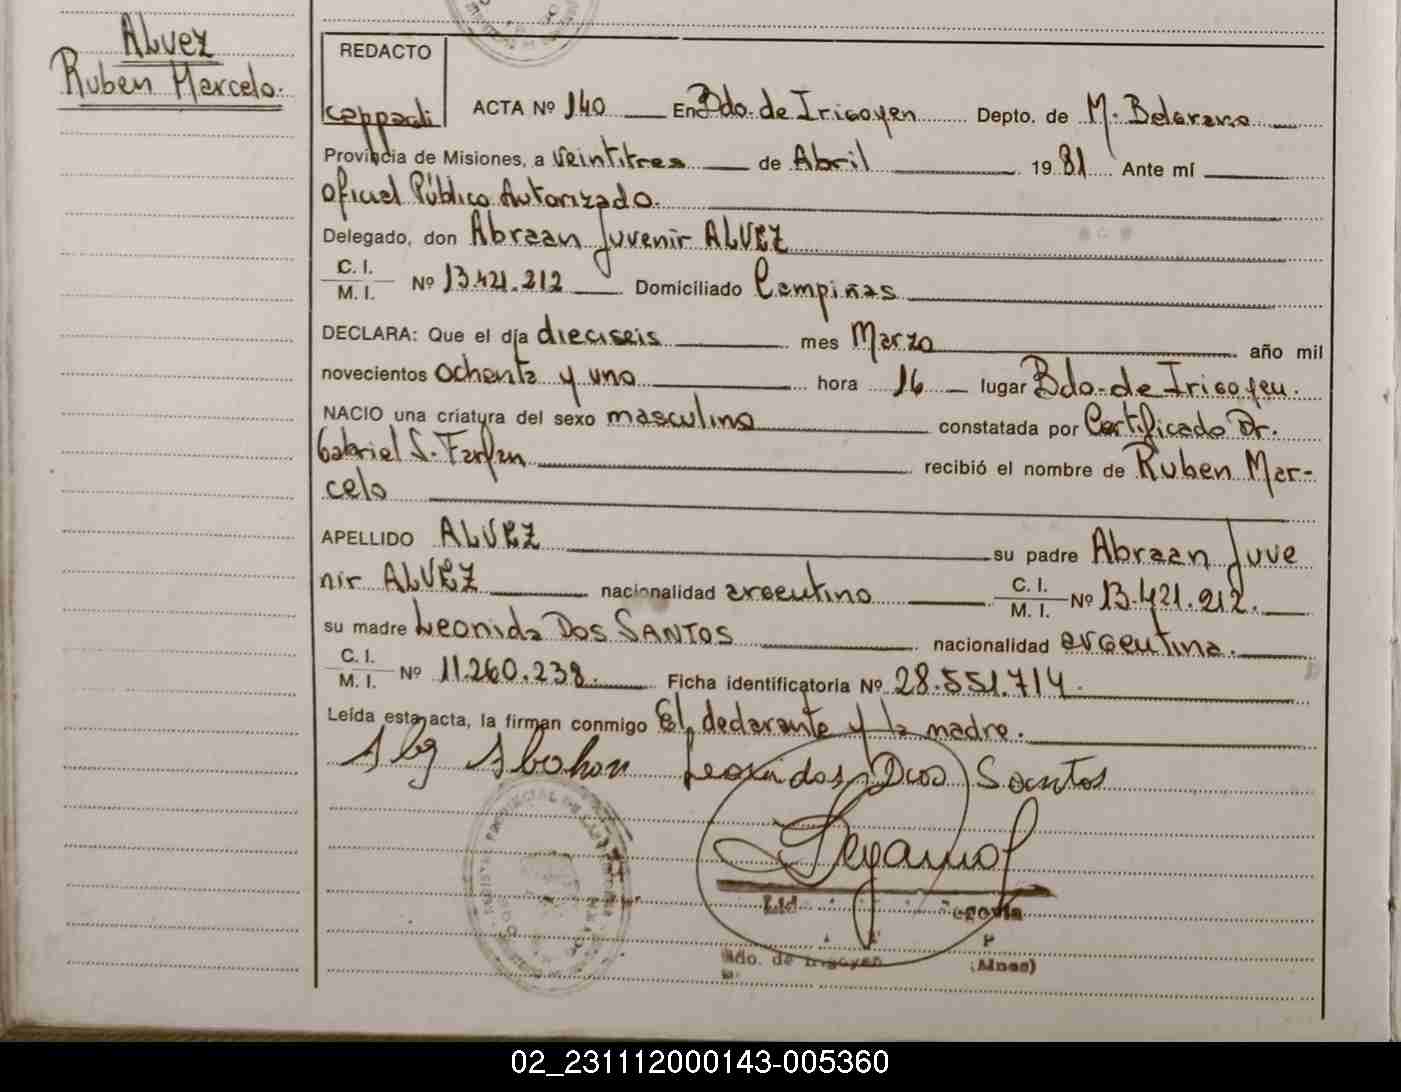 ALVEZ
Ruben Marcelo.
REDACTO
cappadi
ACTA Nº 140 En Bdo. de Irigoyen Depto. de M. Belgrano
Provincia de Misiones, a veintitres de Abril 1981 Ante mí
oficial Público Autorizado.
Delegado, don Abraan Juvenir ALVEZ
C. I.
M. I. Nº 13.421.212 Domiciliado Campiñas
DECLARA: Que el día dieciseis mes Marzo año mil
novecientos ochenta y uno hora 16 lugar Bdo. de Irigoyen.
NACIO una criatura del sexo masculino constatada por Certificado Dr.
Gabriel S. Farfan recibió el nombre de Ruben Mar-
celo
APELLIDO ALVEZ su padre Abraan Juve
nir ALVEZ nacionalidad argentino C. I.
M. I. Nº 13.421.212.
su madre Leonida DOS SANTOS nacionalidad argentina.
C. I.
M. I. Nº 11.260.238. Ficha identificatoria Nº 28.551.714.
Leída esta acta, la firman conmigo El declarante y la madre.
Leonidas Dos Santos
Segovia
Bdo. de Irigoyen (Mnes)
02_231112000143-005360